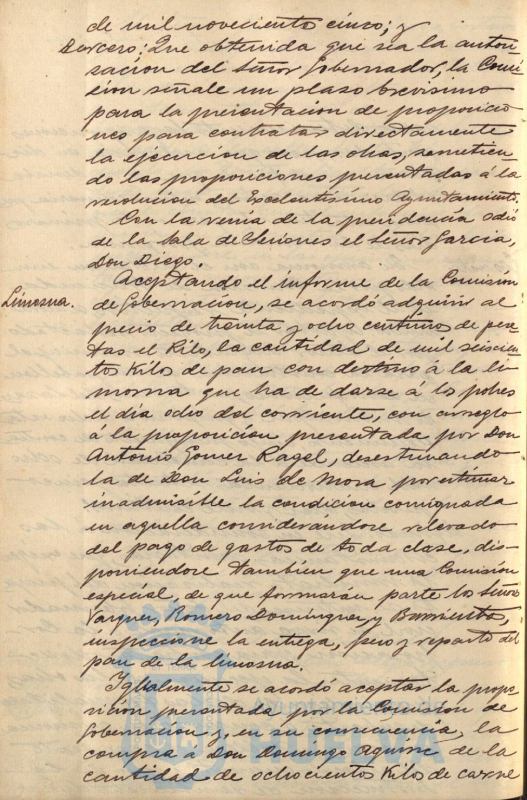 de mil novecientos cinco; y
Tercero: Que obtenida que sea la autori-
sación del Señor Gobernador, la Comi-
sión señale un plazo brevísimo
para la presentación de proposicio-
nes para contratar directamente
la ejecución de las obras, sometien-
do las proposiciones presentadas á la
resolución del Excelentísimo Ayuntamiento.
Con la venia de la presidencia salió
de la Sala de Sesiones el Señor García,
Don Diego.
Aceptando el informe de la Comisión
Limosna. de Gobernación, se acordó adquirir al
precio de treinta y ocho centimos de pese-
tas el Kilo, la cantidad de mil seiscien-
tos Kilos de pan con destino á la li-
mosna que ha de darse á los pobres
el dia ocho del corriente, con arreglo
á la proposición presentada por Don
Antonio Gomez Ragel, desestimando
la de Don Luis de Mora por estimar
inadmisible la condicion consignada
en aquella considerándose relevado
del pago de gastos de toda clase, dis-
poniendose tambien que una Comision
especial, de que formarán parte los Señores
Vazquez, Romero Dominguez y Barrientos,
inspeccione la entrega, peso y reparto del
pan de la limosna.
Igualmente se acordó aceptar la propo-
sición presentada por la Comision de
Gobernación y, en su consecuencia, la
compra a Don Domingo Aguirre de la
cantidad de ochocientos Kilos de carne